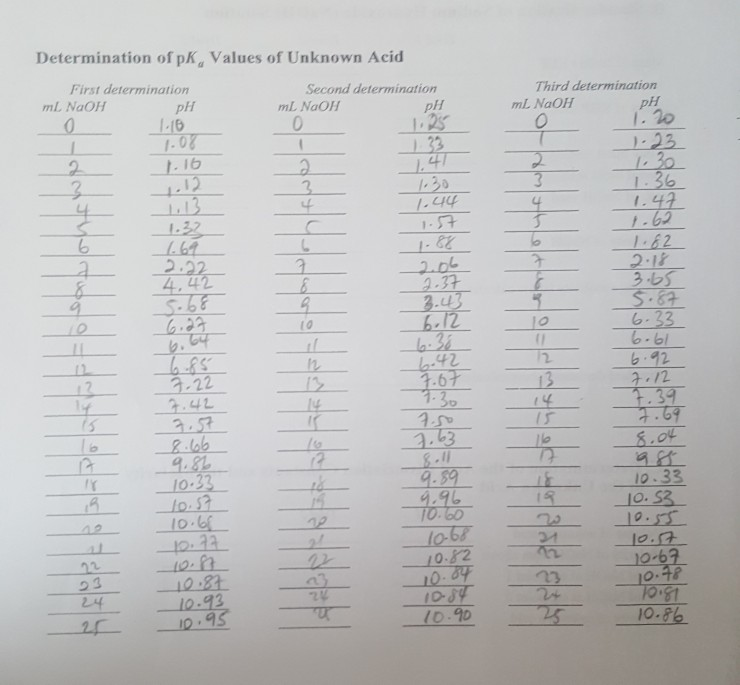 Determination of pKa Values of Unknown Acid
First determination Second determination Third determination
mL NaOH pH mL NaOH pH mL NaOH pH
0 1.10 0 1.25 0 1.20
1 1.08 1 1.33 1 1.23
2 1.10 2 1.41 2 1.30
3 1.12 3 1.30 3 1.36
4 1.13 4 1.44 4 1.47
5 1.32 5 1.57 5 1.62
6 1.69 6 1.88 6 1.82
7 2.22 7 2.06 7 2.18
8 4.42 8 2.37 8 3.65
9 5.68 9 3.43 9 5.87
10 6.27 10 6.12 10 6.33
11 6.64 11 6.38 11 6.61
12 6.85 12 6.42 12 6.92
13 7.22 13 7.07 13 7.12
14 7.42 14 7.30 14 7.39
15 7.57 15 7.50 15 7.69
16 8.66 16 7.63 16 8.04
17 9.86 17 8.11 17 9.85
18 10.33 18 9.89 18 10.33
19 10.57 19 9.96 19 10.53
20 10.68 20 10.60 20 10.55
21 10.77 21 10.68 21 10.57
22 10.81 22 10.82 22 10.67
23 10.87 23 10.84 23 10.78
24 10.93 24 10.84 24 10.81
25 10.95 25 10.90 25 10.86